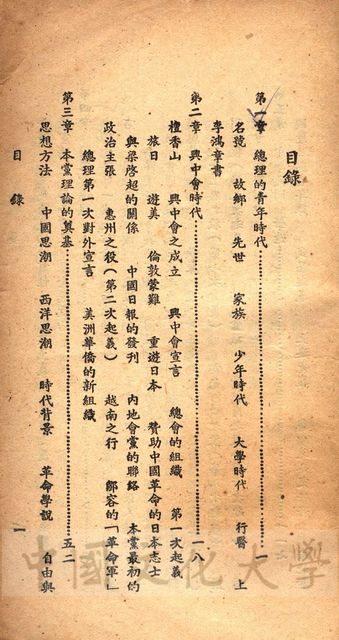 目錄
第一章 總理的青年時代…………一
名號 故鄉 先世 家族 少年時代 大學時代 行醫 上
李鴻章書
第二章 興中會時代…………一八
檀香山 興中會之成立 興中會宣言 總會的組織 第一次起義
旅日 遊美 倫敦蒙難 重遊日本 贊助中國革命的日本志士
與梁啓超的關係 中國日報的發刊 內地會黨的聯絡 本黨最初的
政治主張 惠州之役(第二次起義) 越南之行 鄒容的「革命軍」
總理第一次對外宣言 美洲華僑的新組織
第三章 本黨理論的奠基…………五二
思想方法 中國思潮 西洋思潮 時代背景 革命學說 自由與
目錄 一
中國文化大學